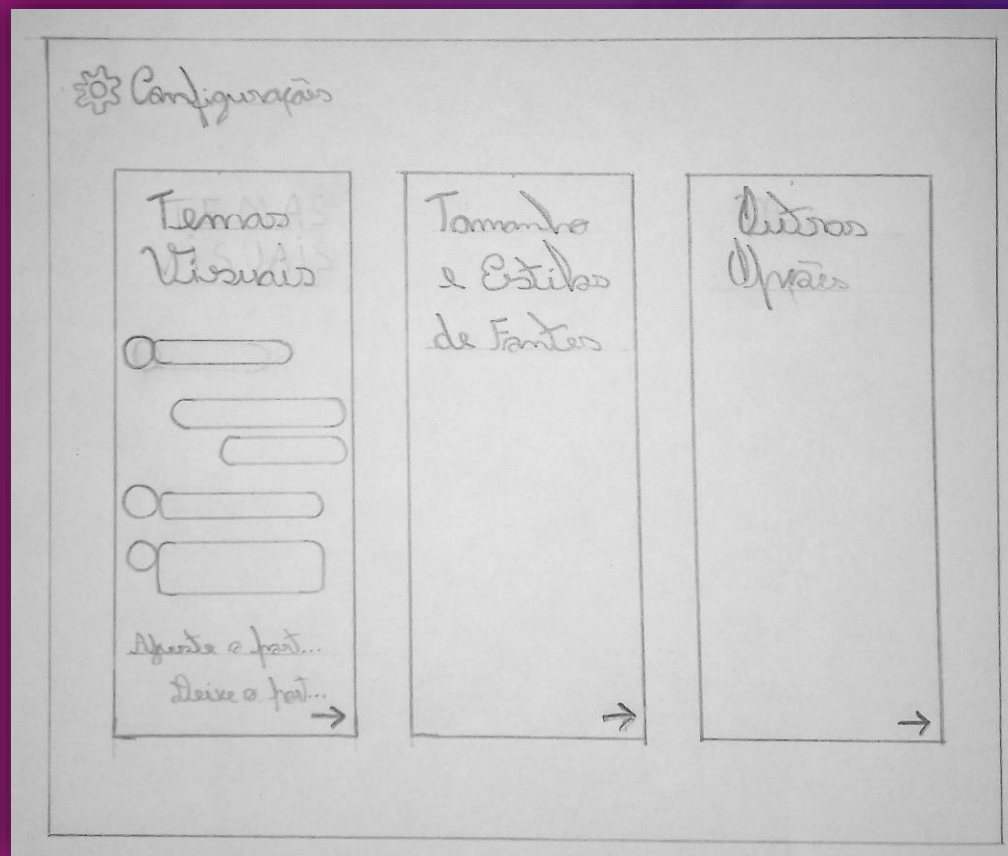 Configurações
Temas
Visuais
Ajuste o port...
Deixe o port...
Tamanho
e Estilos
de Fontes
Outras
Opções